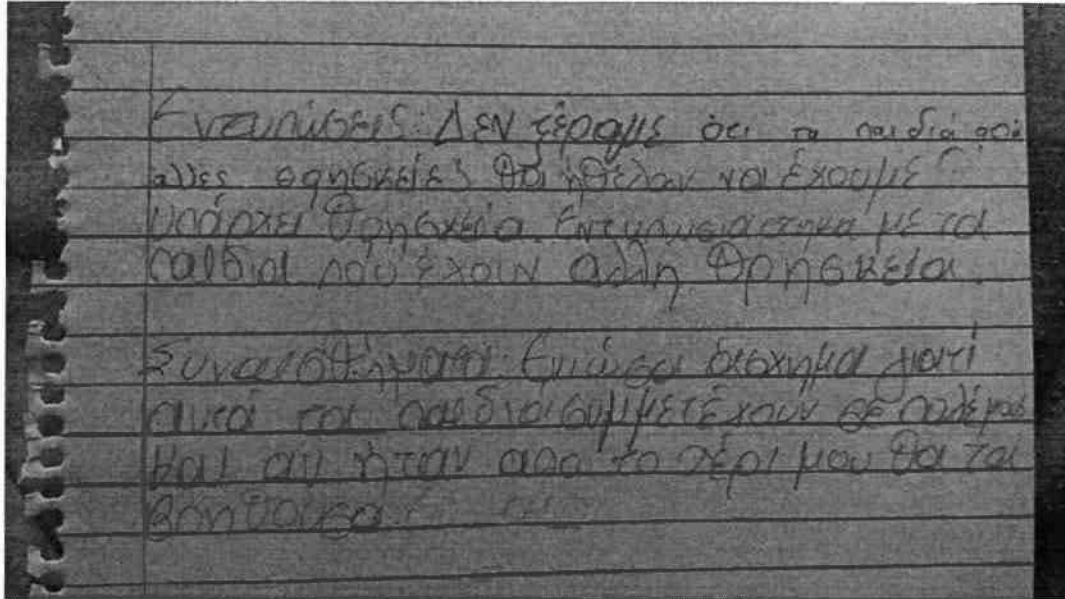 Εντυπώσεις: Δεν ξέραμε ότι τα παιδιά από
αλλες θρησκείες θα ήθελαν να έχουμε
υπάρχει θρησκεία. Εντυπωσιαστηκα με τα
παιδια που έχουν αλλη θρησκεία.
Συναισθήματα: Ενιωσα άσχημα γιατί
αυτά τα παιδια συμμετέχουν σε πολέμους
και αν ήταν απο το χέρι μου θα τα
βοηθουσα.